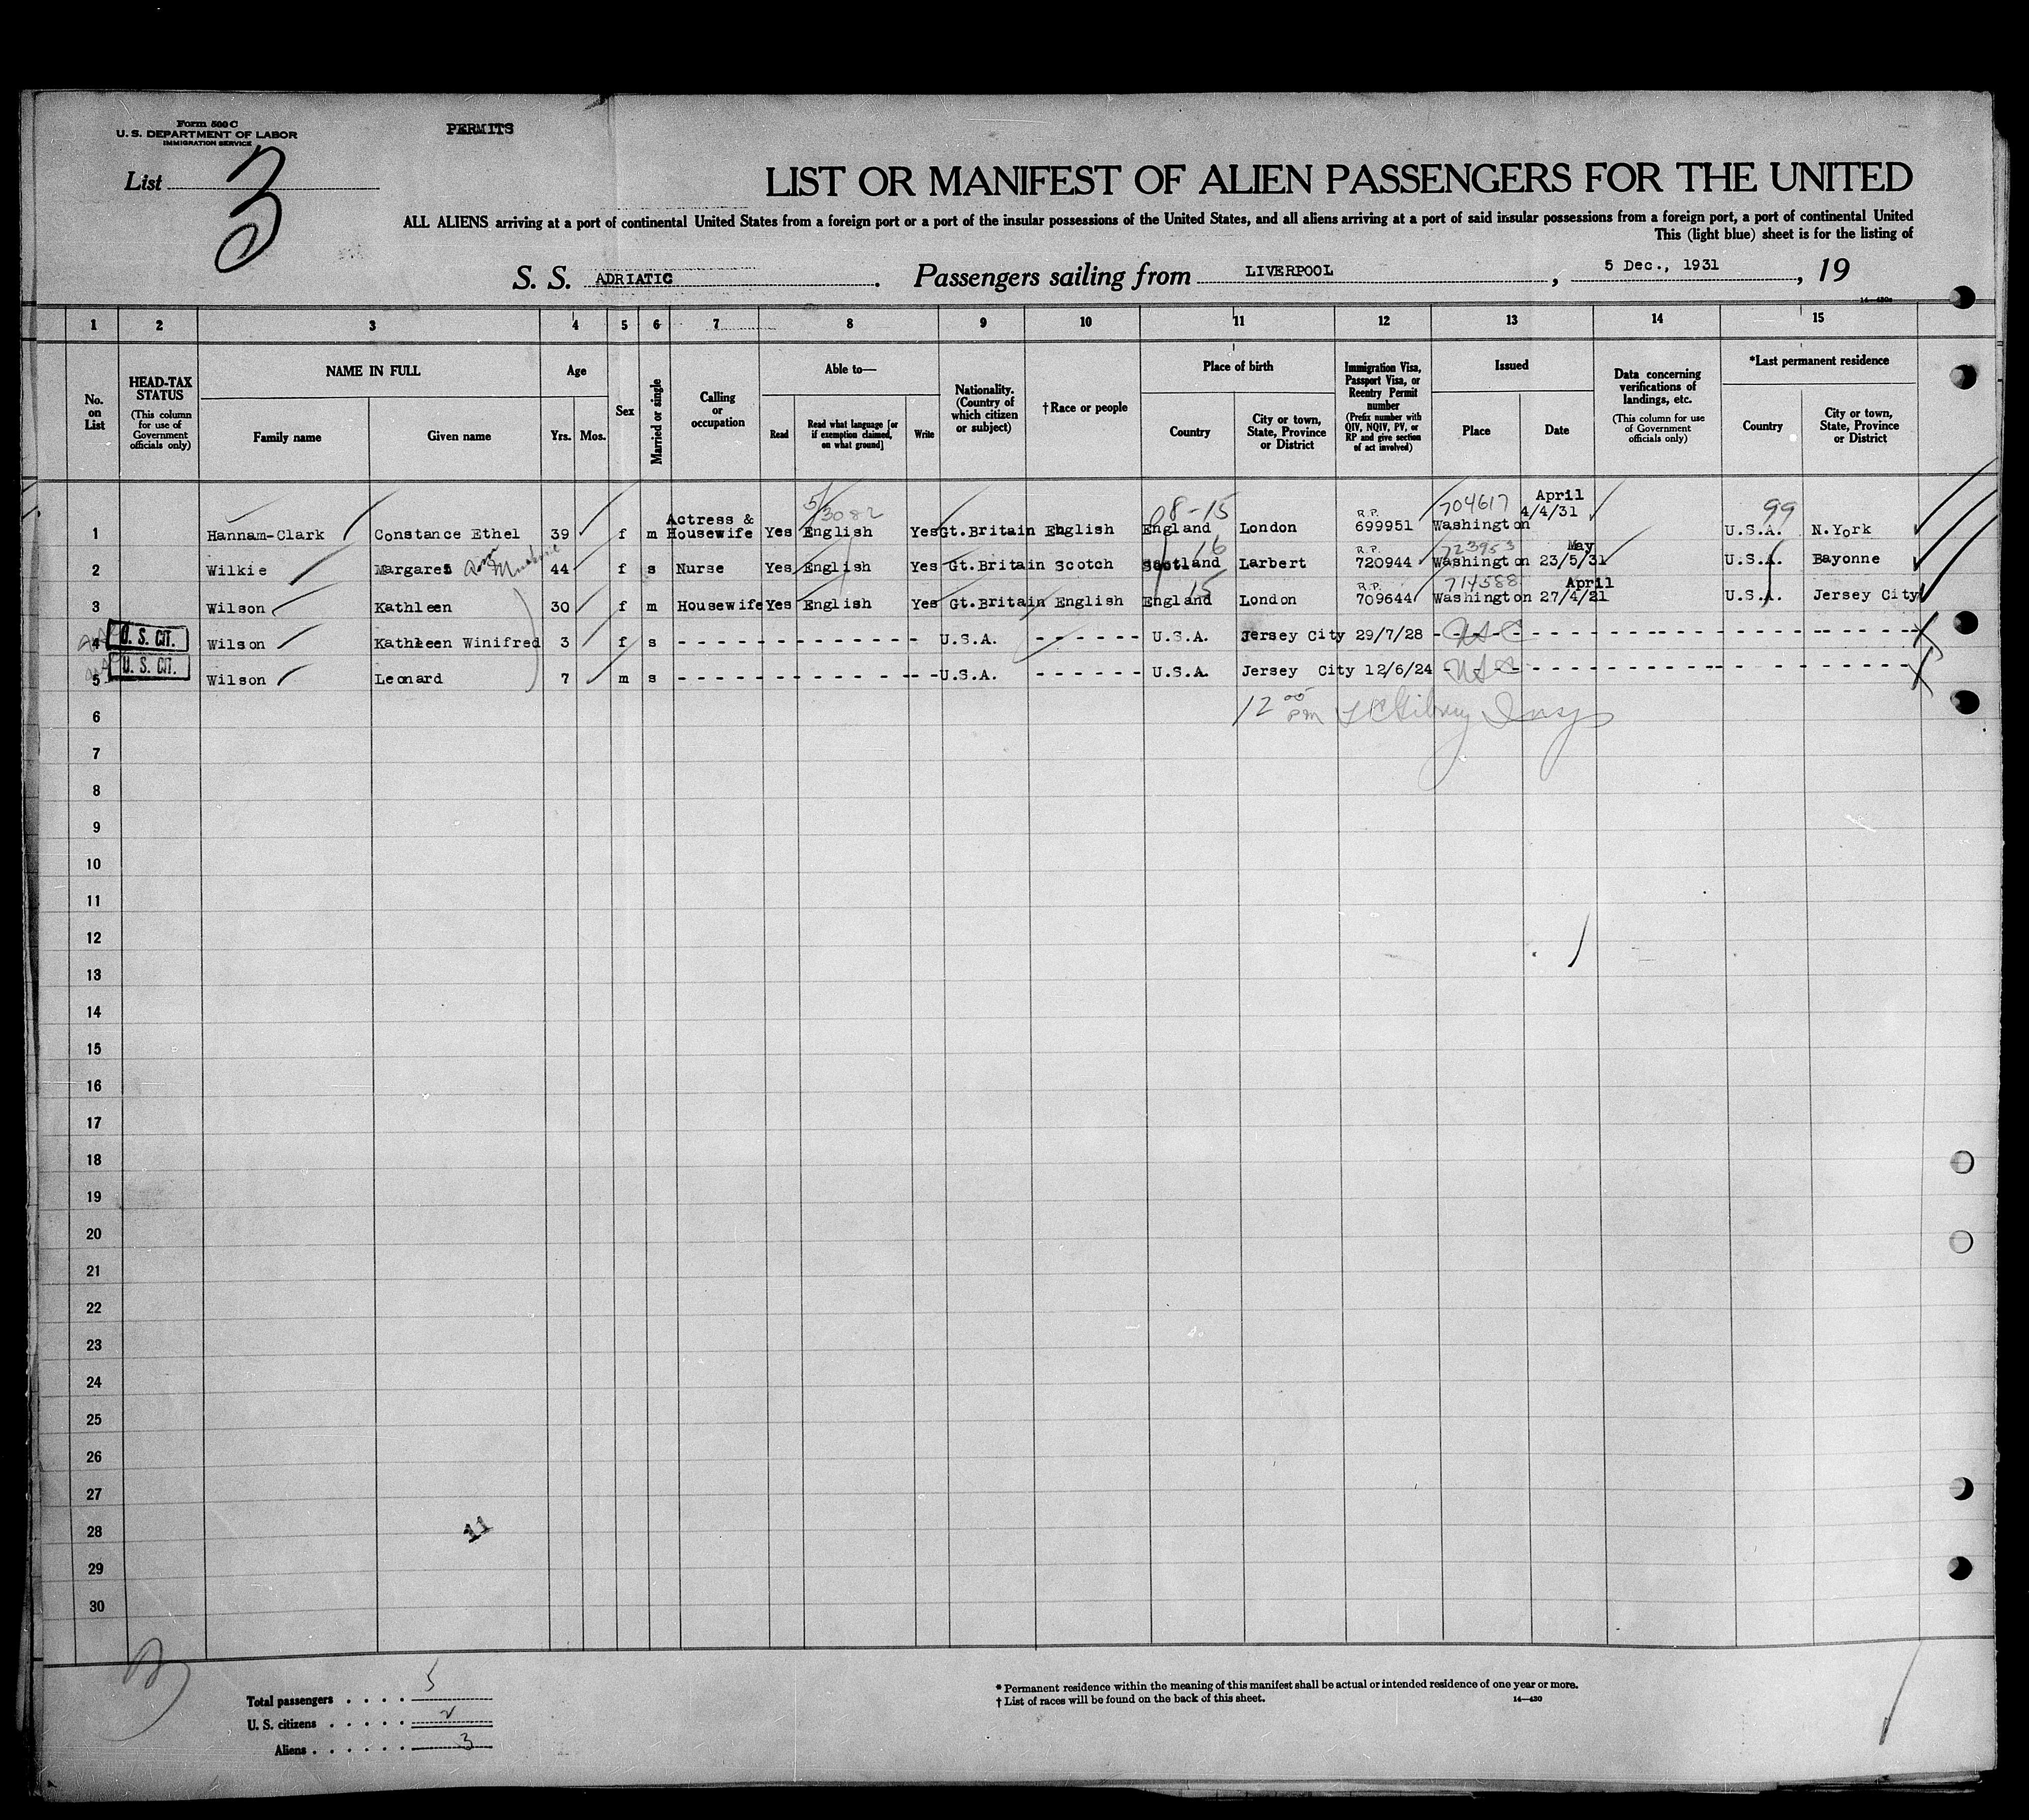 Form 500 C
U. S. DEPARTMENT OF LABOR
IMMIGRATION SERVICE
PERMITS
List 3
LIST OR MANIFEST OF ALIEN PASSENGERS FOR THE UNITED
ALL ALIENS arriving at a port of continental United States from a foreign port or a port of the insular possessions of the United States, and all aliens arriving at a port of said insular possessions from a foreign port, a port of continental United
This (light blue) sheet is for the listing of
S. S. ADRIATIC . Passengers sailing from LIVERPOOL , 5 Dec., 1931 , 19
1 2 3 4 5 6 7 8 9 10 11 12 13 14 15
No. on List
HEAD-TAX STATUS
(This column for use of Government officials only)
NAME IN FULL
Family name
Given name
Age
Yrs. Mos.
Sex
Married or single
Calling or occupation
Able to—
Read
Read what language [or if exemption claimed, on what ground]
Write
Nationality. (Country of which citizen or subject)
† Race or people
Place of birth
Country
City or town, State, Province or District
Immigration Visa, Passport Visa, or Reentry Permit number
(Prefix number with QIV, NQIV, PV, or RP and give section of act involved)
Issued
Place
Date
Data concerning verifications of landings, etc.
(This column for use of Government officials only)
*Last permanent residence
Country
City or town, State, Province or District
5/3082 08-15 704617 April 99
1 Hannam-Clark Constance Ethel 39 f m Actress & Housewife Yes English Yes Gt.Britain English England London R.P. 699951 Washington 4/4/31 U.S.A. N.York
16 723953 May
2 Wilkie Margaret 44 f s Nurse Yes English Yes Gt.Britain Scotch Scotland Larbert R.P. 720944 Washington 23/5/31 U.S.A. Bayonne
15 714588 April
3 Wilson Kathleen 30 f m Housewife Yes English Yes Gt.Britain English England London R.P. 709644 Washington 27/4/21 U.S.A. Jersey City
4 U. S. CIT. Wilson Kathleen Winifred 3 f s U.S.A. U.S.A. Jersey City 29/7/28 USC
5 U. S. CIT. Wilson Leonard 7 m s U.S.A. U.S.A. Jersey City 12/6/24 USC
6 12 00 PM
7
8
9
10
11
12
13
14
15
16
17
18
19
20
21
22
23
24
25
26
27
28 11
29
30
Total passengers . . . . 5
U. S. citizens . . . . . 2
Aliens . . . . . . 3
* Permanent residence within the meaning of this manifest shall be actual or intended residence of one year or more.
† List of races will be found on the back of this sheet.
14—430